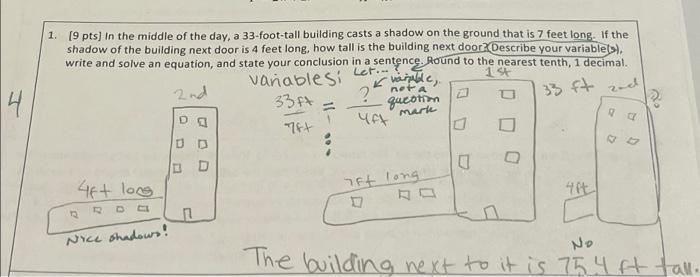 1. [9 pts] In the middle of the day, a 33-foot-tall building casts a shadow on the ground that is 7 feet long. If the
shadow of the building next door is 4 feet long, how tall is the building next door? (Describe your variable(s),
write and solve an equation, and state your conclusion in a sentence. Round to the nearest tenth, 1 decimal.
4
variables: Let...?
variable,
not a
question
mark
2nd
33 ft = ?
7ft 4ft
1st
33 ft
2nd
?
4ft long
7ft long
4ft
Nice shadows!
No
The building next to it is 75.4 ft tall.